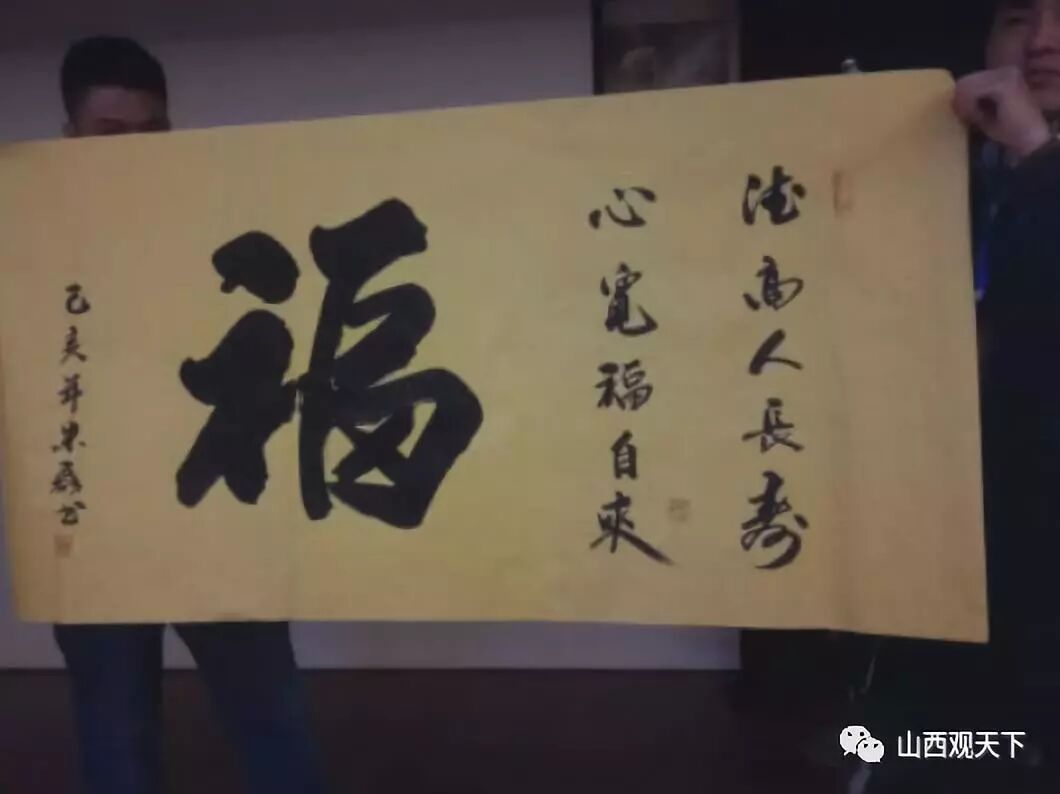 德高人長壽
心寬福自來
福
己亥年忠磊书
山西观天下